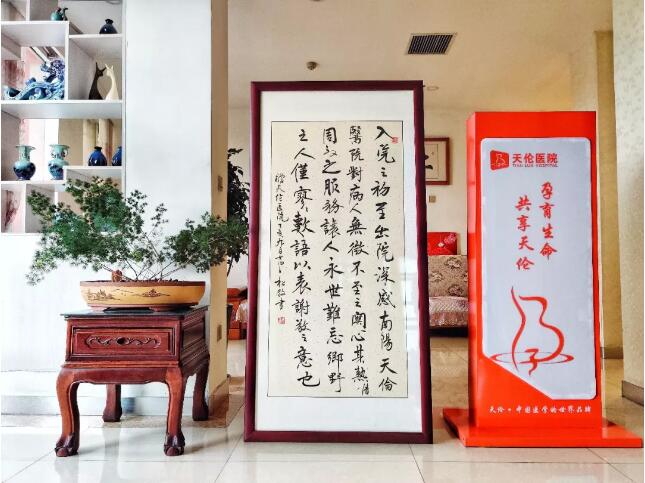 入院之初至出院深感南陽天倫
醫院對病人無微不至之關心其熱情
周到之服務讓人永世難忘鄉野
之人僅寥數語以表謝敬之意也
贈天伦医院
天伦医院
TIAN LUN HOSPITAL
孕育生命
共享天伦
天伦·中国医学的世界品牌